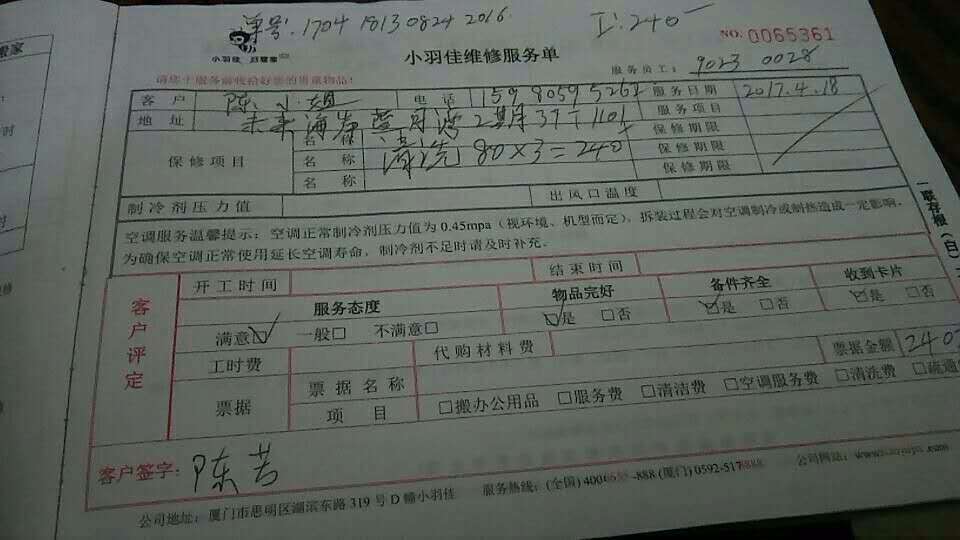 单号: 1704 1813 0824 2016.
工: 240
NO. 0065361
小羽佳
小羽佳维修服务单
服务员工: 9023 0028
请您于服务前收拾好您的贵重物品!
客户 陈小姐 电话 159 8059 5261 服务日期 2017.4.18
地址 未来海岸蓝月湾2期37-1101 服务项目
保修项目 名称 清洗 80×3=240 保修期限
名称 保修期限
名称 保修期限
制冷剂压力值 出风口温度
空调服务温馨提示: 空调正常制冷剂压力值为0.45mpa(视环境、机型而定), 拆装过程会对空调制冷或制热造成一定影响,
为确保空调正常使用延长空调寿命, 制冷剂不足时请及时补充.
一联存根(白)
客户评定
开工时间 结束时间
服务态度 物品完好 备件齐全 收到卡片
满意☑ 一般□ 不满意□ ☑是 □否 ☑是 □否 ☑是 □否
工时费 代购材料费 票据金额 240
票据 票据名称
项目 □搬办公用品 □服务费 □清洁费 □空调服务费 □清洗费 □疏通
客户签字: 陈芳
公司地址: 厦门市思明区湖滨东路319号D幢小羽佳 服务热线: (全国) 400 -888 (厦门) 0592-517 公司网站: